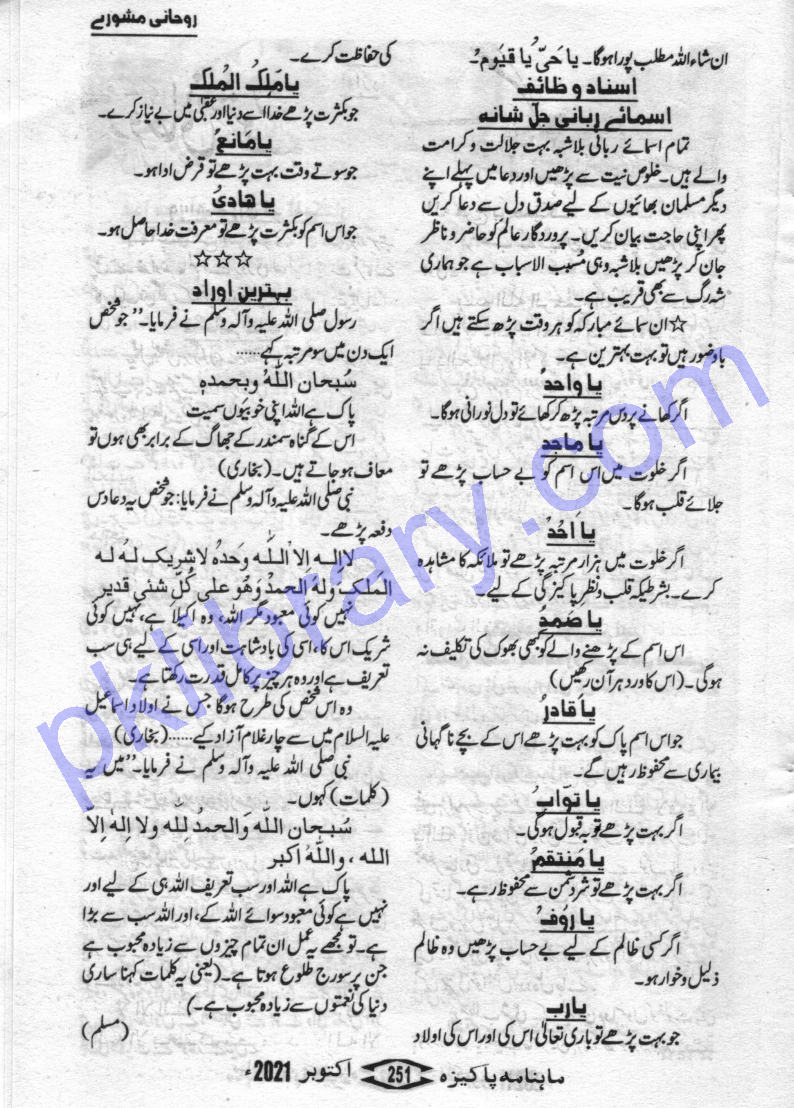 روحانی مشورے
ان شاء اللہ مطلب پورا ہوگا۔ یا حَیُّ یا قیوم۔
اسناد وظائف
اسمائے ربانی جل شانہ
تمام اسمائے ربانی بلاشبہ بہت جلالت و کرامت
والے ہیں۔ خلوص نیت سے پڑھیں اور دعا میں پہلے اپنے
دیگر مسلمان بھائیوں کے لیے صدق دل سے دعا کریں
پھر اپنی حاجت بیان کریں۔ پروردگار عالم کو حاضر و ناظر
جان کر پڑھیں بلاشبہ وہی مُسبب الاسباب ہے جو ہماری
شہ رگ سے بھی قریب ہے۔
☆ ان سمائے مبارکہ کو ہر وقت پڑھ سکتے ہیں اگر
باوضو رہیں تو بہت بہترین ہے۔
یا واحدُ
اگر کھانے پر دس مرتبہ پڑھ کر کھائے تو دل نورانی ہوگا۔
یا ماجد
اگر خلوت میں اس اسم کو بے حساب پڑھے تو
جلائے قلب ہوگا۔
یا اَحَدُ
اگر خلوت میں ہزار مرتبہ پڑھے تو ملائکہ کا مشاہدہ
کرے۔ بشرطیکہ قلب و نظر پاکیزگی کے لیے۔
یا صَمدُ
اس اسم کے پڑھنے والے کو بھی بھوک کی تکلیف نہ
ہوگی۔ (اس کا ورد ہر آن رکھیں)
یا قادرُ
جو اس اسم پاک کو بہت پڑھے اس کے بچے ناگہانی
بیماری سے محفوظ رہیں گے۔
یا توابُ
اگر بہت پڑھے تو توبہ قبول ہوگی۔
یا مُنتقمُ
اگر بہت پڑھے تو شر دشمن سے محفوظ رہے۔
یا رؤفُ
اگر کسی ظالم کے لیے بے حساب پڑھیں وہ ظالم
ذلیل و خوار ہو۔
یارب
جو بہت پڑھے تو باری تعالیٰ اس کی اور اس کی اولاد
کی حفاظت کرے۔
یا مَلِکُ المُلک
جو بکثرت پڑھے خدا اسے دنیا اور عقبیٰ میں بے نیاز کرے۔
یا مَانعُ
جو سوتے وقت بہت پڑھے تو قرض ادا ہو۔
یا ھادیُ
جو اس اسم کو بکثرت پڑھے تو معرفت خدا حاصل ہو۔
☆☆☆
بہترین اوراد
رسول صلی اللہ علیہ وآلہ وسلم نے فرمایا۔ ”جو شخص
ایک دن میں سو مرتبہ کہے......
سُبحان اللّٰہُ وبحمدہٖ
پاک ہے اللہ اپنی خوبیوں سمیت
اس کے گناہ سمندر کے جھاگ کے برابر بھی ہوں تو
معاف ہو جاتے ہیں۔ (بخاری)
نبی صلی اللہ علیہ وآلہ وسلم نے فرمایا: جو شخص یہ دعا دس
دفعہ پڑھے۔
لا اِلہ الا اللّٰہ وَحدہُ لا شریک لہُ لہ
الملک ولہ الحمدُ وَھُو علی کُلّ شئی قدیر
نہیں کوئی معبود مگر اللہ، وہ اکیلا ہے، نہیں کوئی
شریک اس کا، اسی کی بادشاہت اور اسی کے لیے ہی سب
تعریف ہے اور وہ ہر چیز پر کامل قدرت رکھتا ہے۔
وہ اس شخص کی طرح ہوگا جس نے اولاد اسماعیل
علیہ السلام میں سے چار غلام آزاد کیے...... (بخاری)
نبی صلی اللہ علیہ وآلہ وسلم نے فرمایا۔ ”میں یہ
(کلمات) کہوں۔
سُبحان اللہ وَالحمد للہ ولا اِلہ اِلاّ
اللہ، واللّٰہُ اکبر
پاک ہے اللہ اور سب تعریف اللہ ہی کے لیے اور
نہیں ہے کوئی معبود سوائے اللہ کے، اور اللہ سب سے بڑا
ہے۔ تو مجھے یہ عمل ان تمام چیزوں سے زیادہ محبوب ہے
جن پر سورج طلوع ہوتا ہے۔ (یعنی یہ کلمات کہنا ساری
دنیا کی نعمتوں سے زیادہ محبوب ہے۔)
(مسلم)
ماہنامہ پاکیزہ 251 اکتوبر 2021ء
pklibrary.com